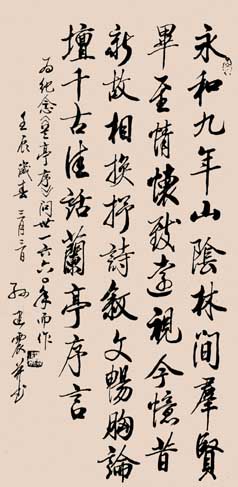 永和九年山陰林間群賢
畢至情懷致遠視今憶昔
新故相換抒詩敘文暢胸論
壇千古佳話蘭亭序言
為紀念《蘭亭序》問世一六六〇年而作
壬辰歲春三月三日
孫建震並書